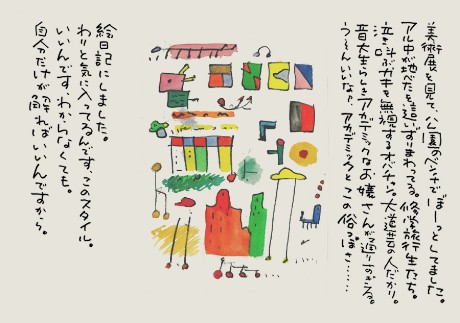 美術展を見て、公園のベンチでぼーっとしてました。
アル中が地べたを這いずりまわってる。修学旅行生たち。
泣き叫ぶガキを無視するオバチャン。大道芸の人だかり。
音大生らしきアカデミックなお嬢さんが通りすぎる。
う〜んいいな♪、アカデミックとこの俗っぽさ……
絵日記にしました。
わりと気に入ってるんです、このスタイル。
いいんです、わからなくても。
自分だけが解ればいいんですから。